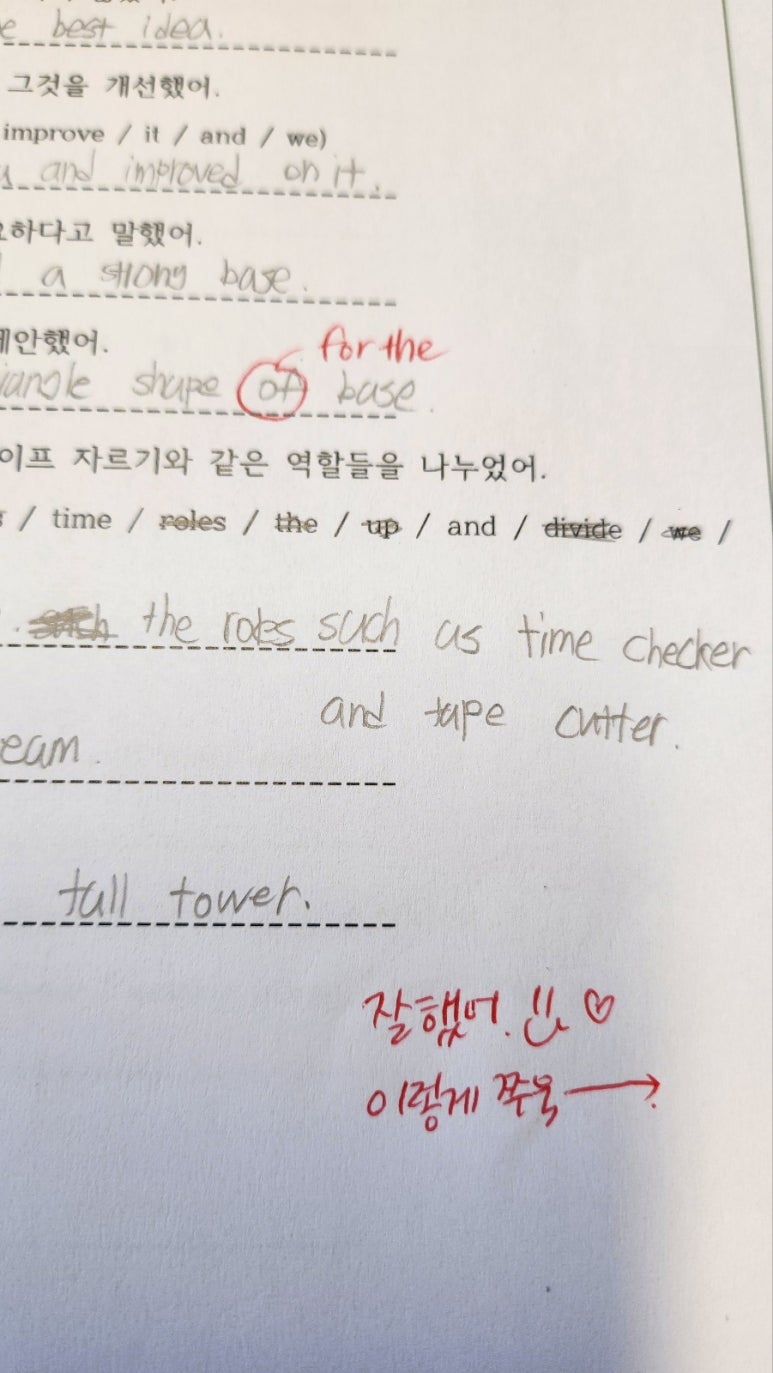 best idea.
그것을 개선했어.
improve / it / and / we)
and improved on it.
하다고 말했어.
a strong base.
안했어.
for the
shape of base.
이프 자르기와 같은 역할들을 나누었어.
/ time / roles / the / up / and / divide / we /
the roles such as time checker
and tape cutter.
eam.
tall tower.
잘했어.
이렇게 쭈욱